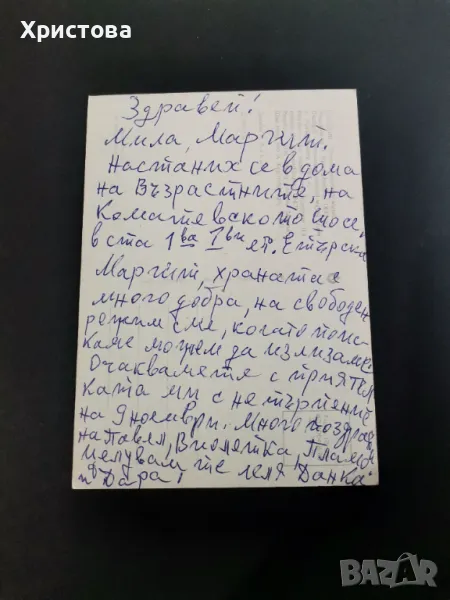 Христова
Здравей!
Мила, Маргит.
Настаних се в дома
на Възрастните, на
Коматевското шосе,
в ста 1ва Iви ет.
Маргит, храната е
много добра, на свободен
режим сме, когато поис-
каме можем да излизаме.
Очаквамете с прият
ката ми с нетърпение
на 9 ноември. Много поздрави
на Павел, Виолетка, Пламен
и Дара! Целувам те леля Данка
BAZAR